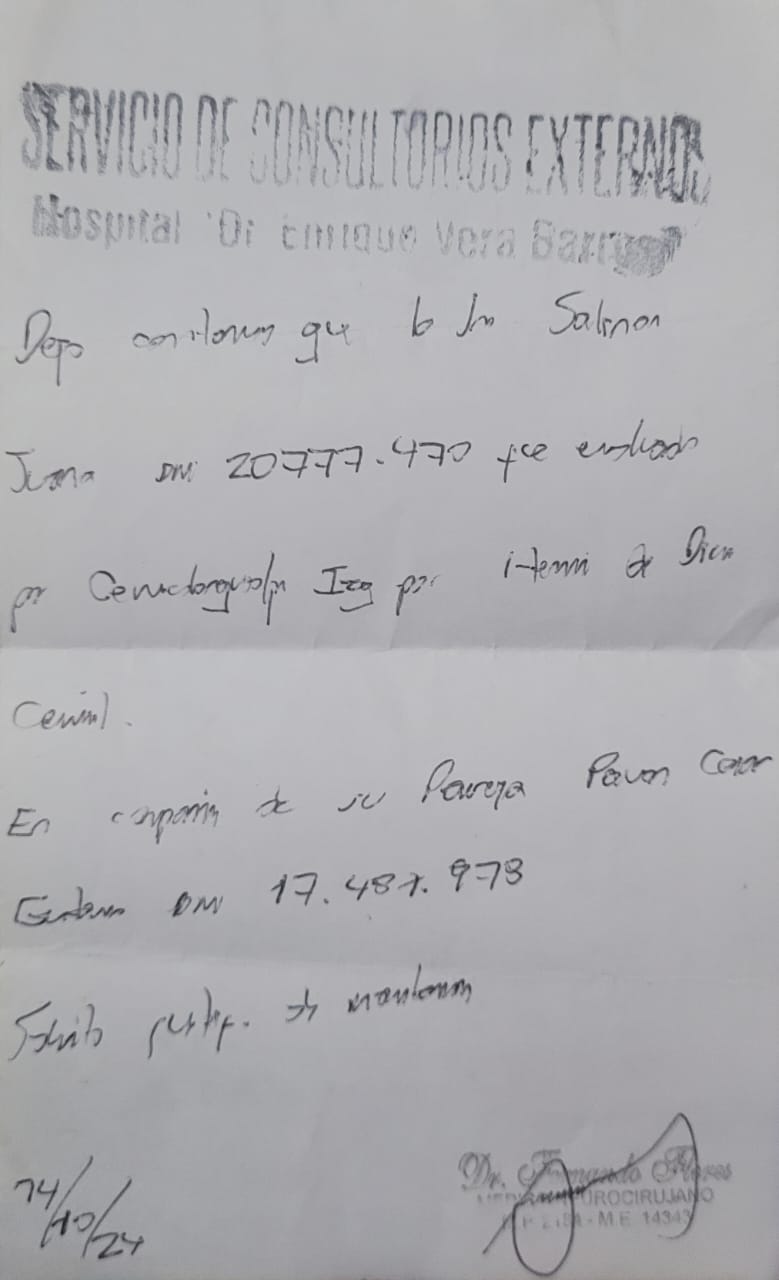 SERVICIO DE CONSULTORIOS EXTERNOS
Hospital Dr Enrique Vera Barros
Dejo constancia que la Sra
Juana DNI 20777.470 fue evaluada
por Cervicobraquialgia Izq por Hernia de Disco
Cervical.
En compañia de su Pareja Pavon Cesar
Gustavo DNI 17.487.978
Solicito justif. de
14/10/24
Dr. Fernando Flores
NEUROCIRUJANO
M.E. 14343